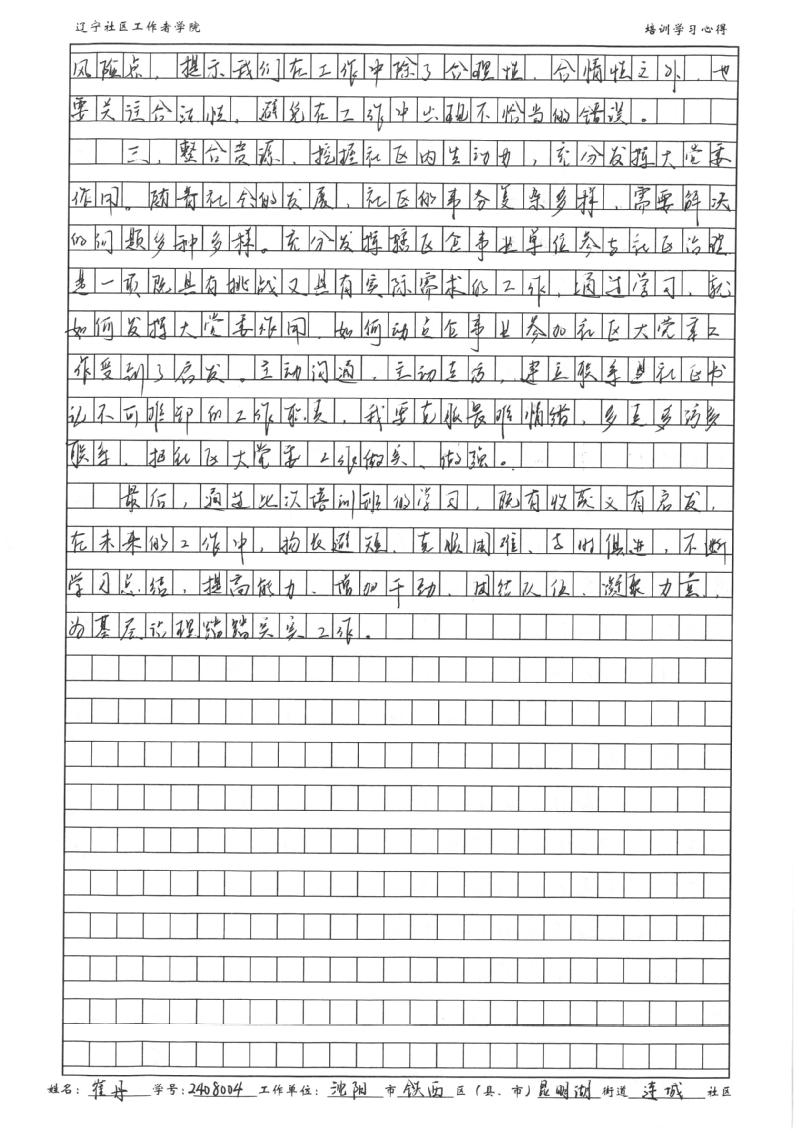 辽宁社区工作者学院 培训学习心得
风险点，提示我们在工作中除了合理性、合情性之外，也
要关注合法性，避免在工作中出现不恰当的错误。
三、整合资源，挖掘社区内生动力，充分发挥大党委
作用。随着社会的发展，社区的事务复杂多样，需要解决
的问题多种多样。充分发挥辖区企事业单位参与社区治理
是一项既具有挑战又具有实际需求的工作，通过学习，就
如何发挥大党委作用，如何动员企事业参加社区大党委工
作受到了启发。主动沟通，主动走访，建立联系是社区书
记不可推卸的工作职责，我要克服畏难情绪，多走多访多
联系，把社区大党委工作做实、做强。
最后，通过此次培训班的学习，既有收获又有启发，
在未来的工作中，扬长避短、克服困难、与时俱进，不断
学习总结，提高能力、增加干劲、团结队伍、凝聚力量，
为基层治理踏踏实实工作。
姓名：崔丹 学号:2408004 工作单位：沈阳 市 铁西 区（县、市）昆明湖 街道 连城 社区